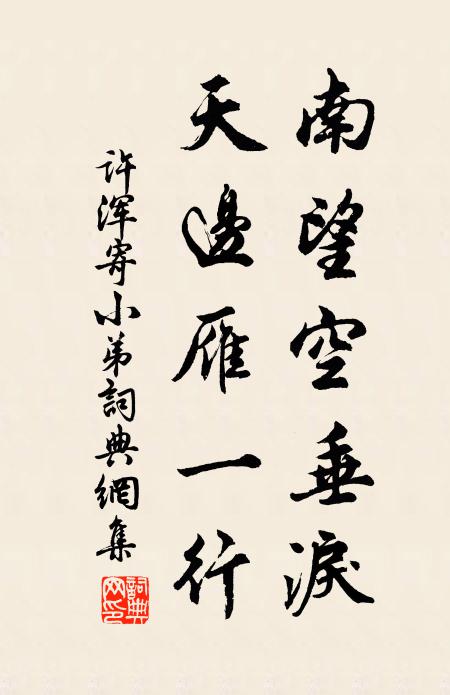 南望空垂淚
天邊雁一行
许浑寄小弟詞典網集
詞典网印